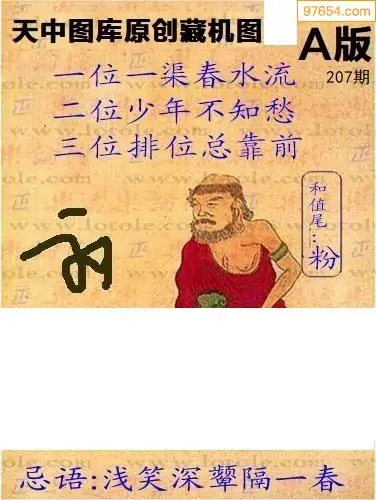 97654.com
天中图库原创藏机图
A版
207期
一位一渠春水流
二位少年不知愁
三位排位总靠前
和值尾:粉
www.lotole.com
忌语:浅笑深颦隔一春